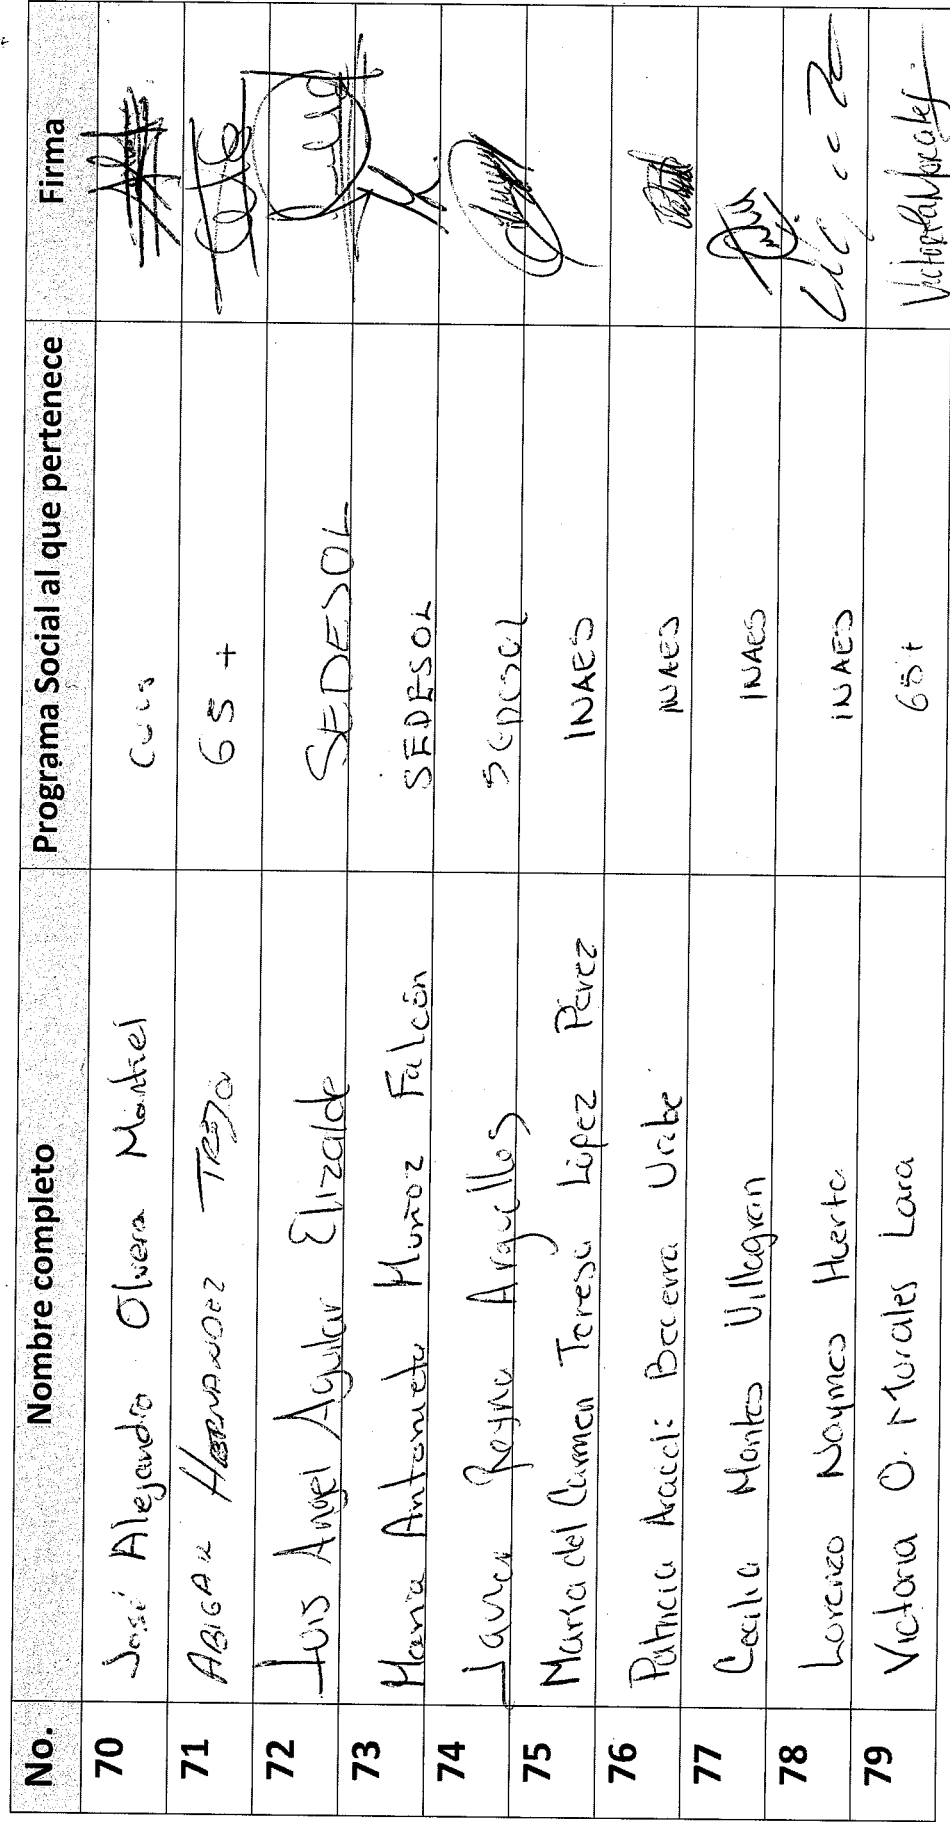 No. Nombre completo Programa Social al que pertenece Firma
70 José Alejandro Olvera Montiel Cuis
71 ABIGAIL HERNANDEZ TREJO 65 +
72 Luis Angel Aguilar Elizalde SEDESOL
73 Maria Antonieta Muñoz Falcón SEDESOL
74 Laura Reyna Arguellos SEDESOL
75 María del Carmen Teresa López Pérez INAES
76 Patricia Araceli Becerra Uribe INAES
77 Cecilia Montes Villagran INAES
78 Lorenzo Naymes Huerta INAES
79 Victoria O. Morales Lara 65+ Victoria Morales